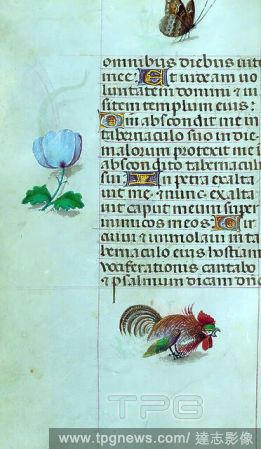 omnibus diebus vite
mee: Et videam vo
luntatem domini et vi
sitem templum eius:
Qm abscondit me in
tabernaculo suo in die
malorum protexit me i
abscondito tabernaculi
sui: In petra exalta
vit me et nunc exalta
vit caput meum super
inimicos meos: Cir
cuivi et immolavi in ta
bernaculo eius hostiam
vociferationis cantabo
et psalmum dicam dno
TPG
www.tpgnews.com/ 達志影像